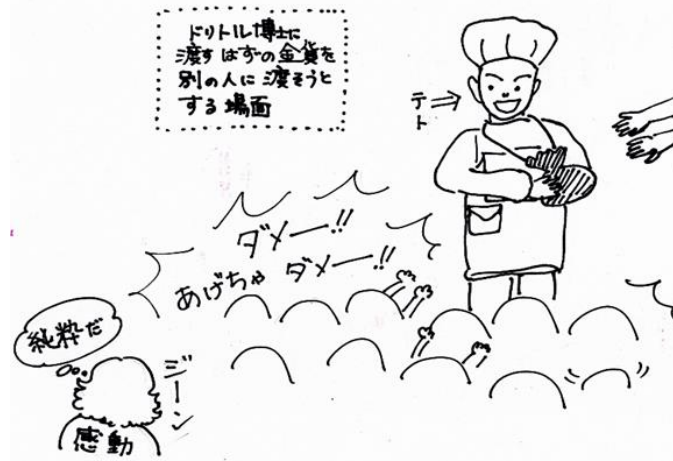 ドリトル博士に
渡すはずの金貨を
別の人に渡そうと
する場面
テト
ダメー!!
あげちゃ ダメー!!
純粋だ
ジーン
感動